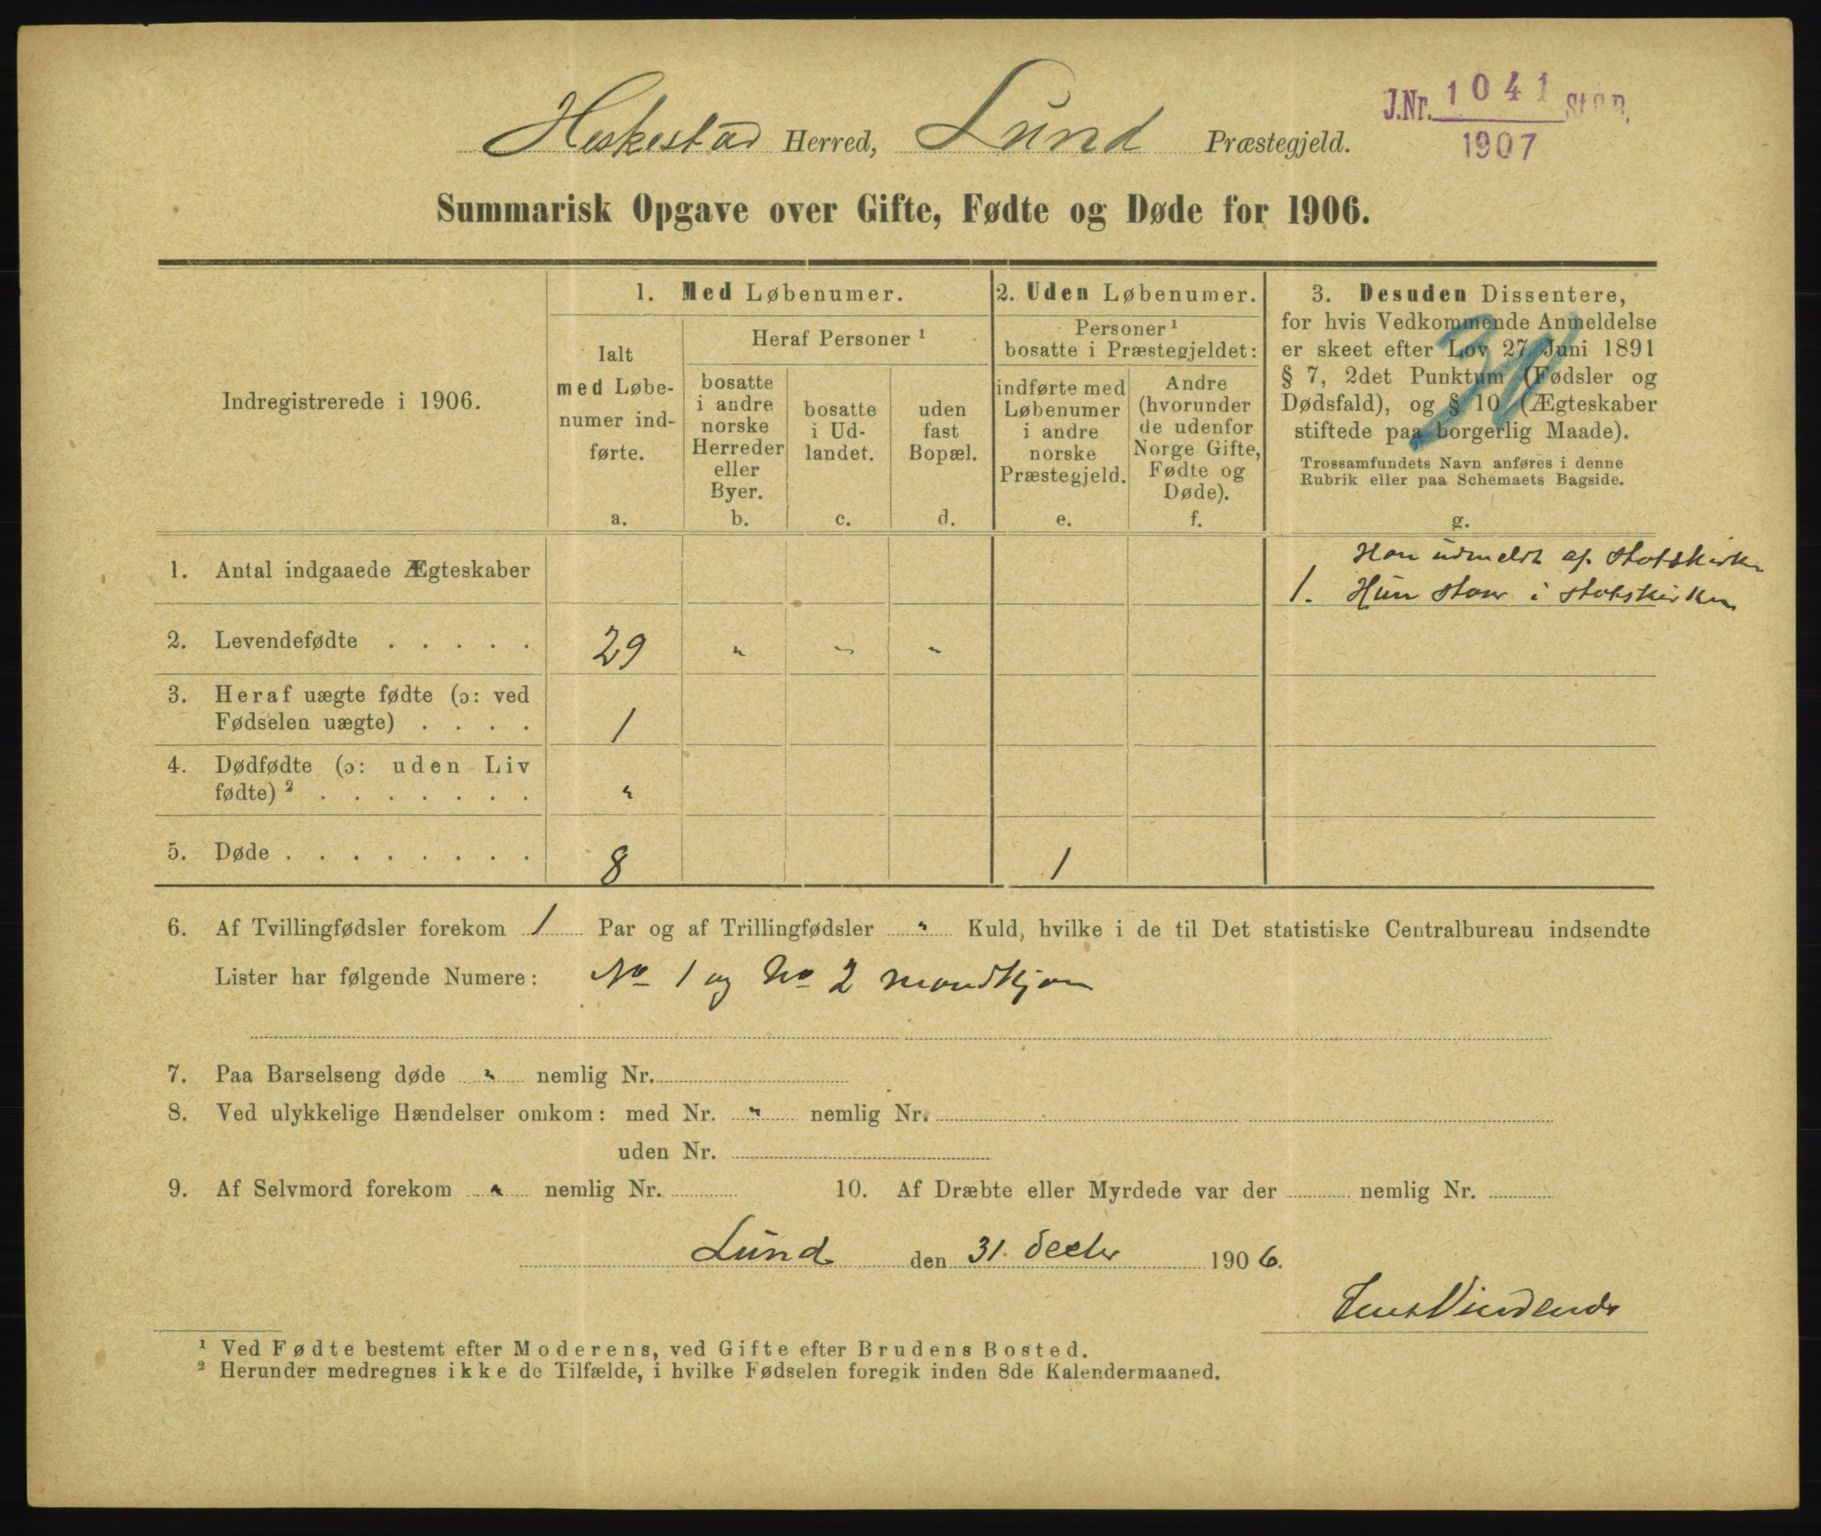 Heskestad Herred, Lund Præstegjeld.
J.Nr. 1041 St.C.B.
1907
Summarisk Opgave over Gifte, Fødte og Døde for 1906.
Indregistrerede i 1906.
1. Med Løbenumer.
Ialt
med Løbe-
numer ind-
førte.
a.
Heraf Personer ¹
bosatte
i andre
norske
Herreder
eller
Byer.
b.
bosatte
i Ud-
landet.
c.
uden
fast
Bopæl.
d.
2. Uden Løbenumer.
Personer ¹
bosatte i Præstegjeldet:
indførte med
Løbenumer
i andre
norske
Præstegjeld.
e.
Andre
(hvorunder
de udenfor
Norge Gifte,
Fødte og
Døde).
f.
3. Desuden Dissentere,
for hvis Vedkommende Anmeldelse
er skeet efter Lov 27 Juni 1891
§ 7, 2det Punktum (Fødsler og
Dødsfald), og § 10 (Ægteskaber
stiftede paa borgerlig Maade).
Trossamfundets Navn anføres i denne
Rubrik eller paa Schemaets Bagside.
g.
1. Antal indgaaede Ægteskaber
Han udmeldt af Statskirke
1. Hun staar i Statskirken
2. Levendefødte . . . . . 29 " " "
3. Heraf uægte fødte (ɔ: ved
Fødselen uægte) . . . . 1
4. Dødfødte (ɔ: uden Liv
fødte) ² . . . . . . . "
5. Døde . . . . . . . . . 8 1
6. Af Tvillingfødsler forekom 1 Par og af Trillingfødsler " Kuld, hvilke i de til Det statistiske Centralbureau indsendte
Lister har følgende Numere: No 1 og No 2 mandkjøn
7. Paa Barselseng døde " nemlig Nr.
8. Ved ulykkelige Hændelser omkom: med Nr. " nemlig Nr.
uden Nr.
9. Af Selvmord forekom " nemlig Nr. 10. Af Dræbte eller Myrdede var der nemlig Nr.
Lund den 31. Decbr 1906.
¹ Ved Fødte bestemt efter Moderens, ved Gifte efter Brudens Bosted.
² Herunder medregnes ikke de Tilfælde, i hvilke Fødselen foregik inden 8de Kalendermaaned.